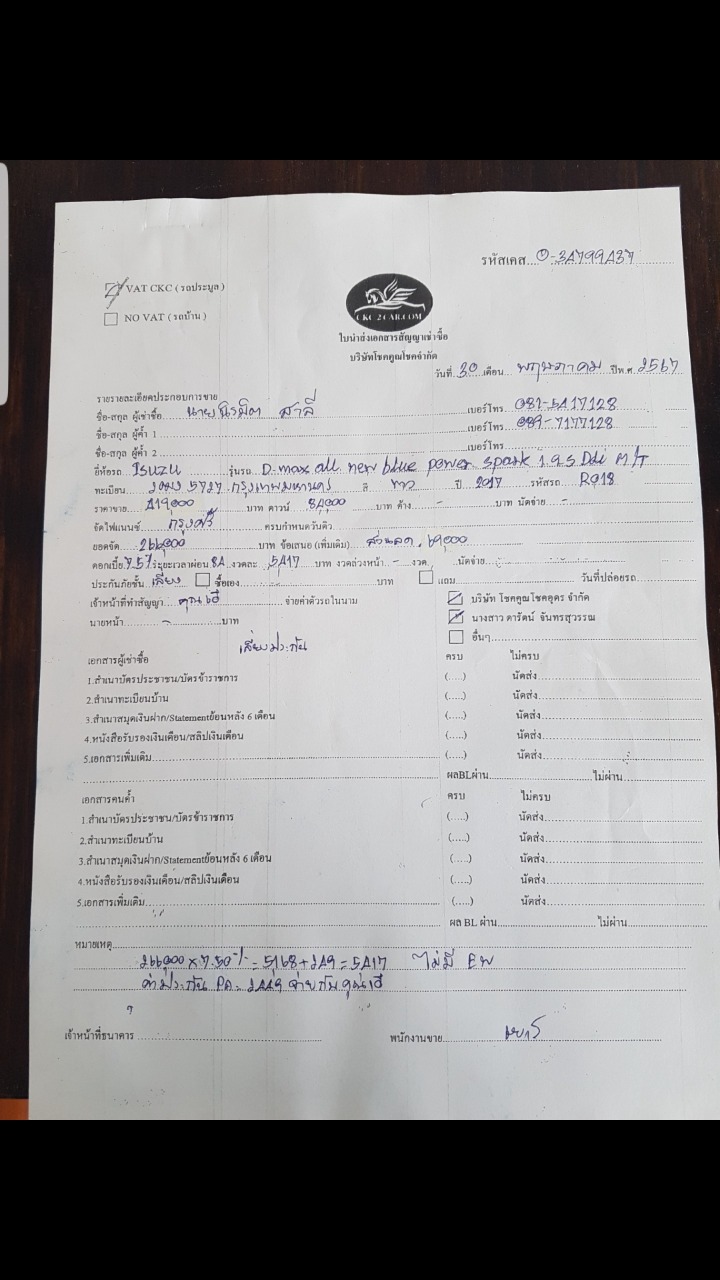 รหัสเคส....0-3A799A37
VAT CKC ( รถประมูล )
NO VAT ( รถบ้าน )
CKC 2 CAR.COM
ใบนำส่งเอกสารสัญญาเช่าซื้อ
บริษัทโชคคูณโชคจำกัด
วันที่.30.เดือน พฤษภาคม ปีพ.ศ.2567
รายละเอียดประกอบการขาย
ชื่อ-สกุล ผู้เช่าซื้อ นาย สาลี เบอร์โทร 081-5417128
ชื่อ-สกุล ผู้ค้ำ 1 เบอร์โทร 089-7177128
ชื่อ-สกุล ผู้ค้ำ 2 เบอร์โทร
ยี่ห้อรถ ISUZU รุ่นรถ D-max all new blue power spark 1.9 S Ddi M/T
ทะเบียน 5727 กรุงเทพมหานคร สี ขาว ปี 2017 รหัสรถ R918
ราคาขาย 419,000 บาท ดาวน์ 84,000 บาท ค้าง - บาท นัดจ่าย -
จัดไฟแนนซ์ กรุงศรี ครบกำหนดวันดิว
ยอดจัด 266,000 บาท ข้อเสนอ (เพิ่มเติม) ส่วนลด 69,000
ดอกเบี้ย 7.5% ระยะเวลาผ่อน 84 งวดละ 5417 บาท งวดล่วงหน้า - งวด นัดจ่าย
ประกันภัยชั้น เสี่ยง ซื้อเอง บาท แถม วันที่ปล่อยรถ
เจ้าหน้าที่ทำสัญญา คุณเอ๊ จ่ายค่าตัวรถในนาม บริษัท โชคคูณโชคอุดร จำกัด
นายหน้า - บาท นางสาว ดารัตน์ จันทรสุวรรณ
อื่นๆ
เสี่ยงประกัน
เอกสารผู้เช่าซื้อ ครบ ไม่ครบ
1.สำเนาบัตรประชาชน/บัตรข้าราชการ (.....) นัดส่ง
2.สำเนาทะเบียนบ้าน (.....) นัดส่ง
3.สำเนาสมุดเงินฝาก/Statementย้อนหลัง 6 เดือน (.....) นัดส่ง
4.หนังสือรับรองเงินเดือน/สลิปเงินเดือน (.....) นัดส่ง
5.เอกสารเพิ่มเติม (.....) นัดส่ง
ผลBLผ่าน ไม่ผ่าน
เอกสารคนค้ำ ครบ ไม่ครบ
1.สำเนาบัตรประชาชน/บัตรข้าราชการ (.....) นัดส่ง
2.สำเนาทะเบียนบ้าน (.....) นัดส่ง
3.สำเนาสมุดเงินฝาก/Statementย้อนหลัง 6 เดือน (.....) นัดส่ง
4.หนังสือรับรองเงินเดือน/สลิปเงินเดือน (.....) นัดส่ง
5.เอกสารเพิ่มเติม (.....) นัดส่ง
ผล BL ผ่าน ไม่ผ่าน
หมายเหตุ
266,000 x 7.50% = 5,168 + 249 = 5417 ไม่มี EW
ค่าประกัน PA. 2449 จ่ายกับคุณเอ๊
เจ้าหน้าที่ธนาคาร พนักงานขาย